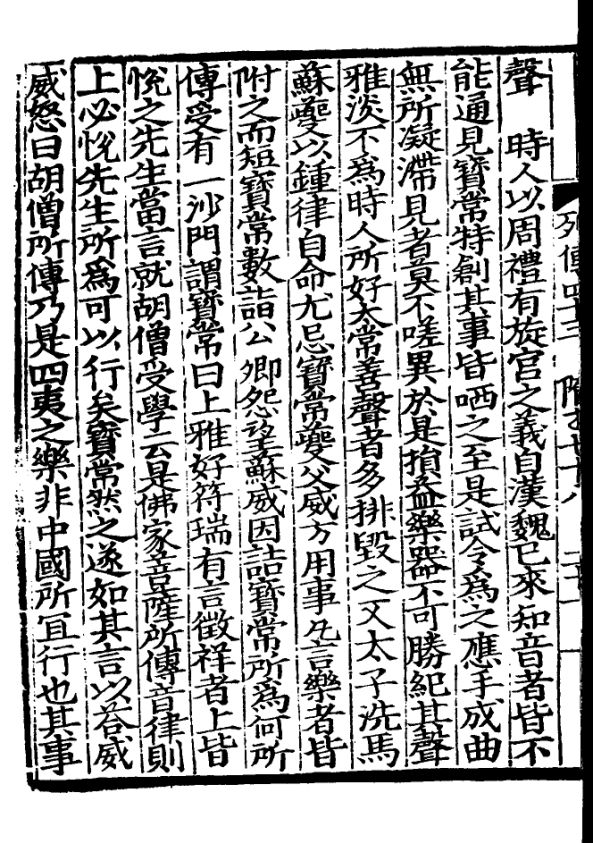 列傳四十三　隋書七十八　二十一
聲　時人以周禮有旋宫之義自漢魏已來知音者皆不
能通見寶常特創其事皆哂之至是試令爲之應手成曲
無所凝滯見者莫不嗟異於是損益樂器不可勝紀其聲
雅淡不爲時人所好太常善聲者多排毀之又太子洗馬
蘇夔以鍾律自命尤忌寶常夔父威方用事凡言樂者皆
附之而短寶常數詣公卿怨望蘇威因詰寶常所爲何所
傳受有一沙門謂寶常曰上雅好符瑞有言徵祥者上皆
悅之先生當言就胡僧受學云是佛家菩薩所傳音律則
上必悅先生所爲可以行矣寶常然之遂如其言以荅威
威怒曰胡僧所傳乃是四夷之樂非中國所冝行也其事